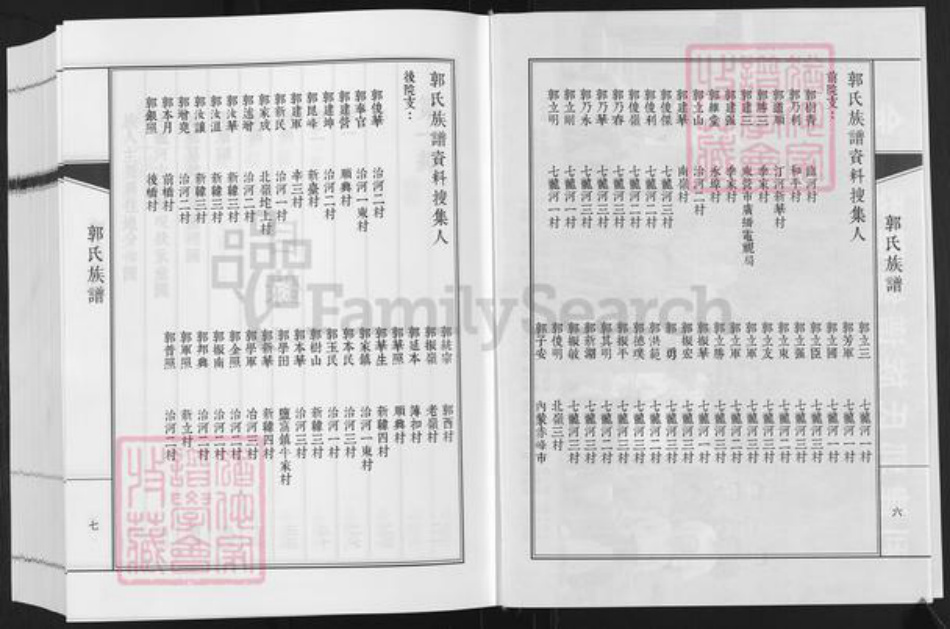 郭氏族譜
六
郭氏族譜資料搜集人
前院支：
郭樹青 臨河村
郭乃利 和平村
郭道順 汀河新華村
郭勝三 李家村
郭建三 東營市廣播電視局
郭建强 李家村
郭維堂 永阜村
郭立山 治河二村
郭建華 南嶺村
郭俊傑 七龍河三村
郭俊利 七龍河二村
郭俊嶺 七龍河二村
郭乃春 七龍河三村
郭乃華 七龍河三村
郭乃永 七龍河三村
郭立剛 七龍河一村
郭立明 七龍河一村
郭立三 七龍河一村
郭芳軍 七龍河一村
郭立國 七龍河一村
郭立臣 七龍河一村
郭立强 七龍河三村
郭立東 七龍河二村
郭立友 七龍河三村
郭立軍 七龍河三村
郭立軍 七龍河二村
郭立勝 七龍河三村
郭振華 七龍河三村
郭振宏 七龍河三村
郭勇 七龍河三村
郭洪範 七龍河二村
郭德璞 七龍河一村
郭振平 七龍河三村
郭其明 七龍河二村
郭新湖 七龍河三村
郭振敏 七龍河三村
郭俊明 北嶺三村
郭子安 內蒙赤峰市
郭氏族譜資料搜集人
後院支：
郭俊華 治河二村
郭奉官 治河一東村
郭建營 順興村
郭建坤 治河二村
郭昆峰 新臺村
郭建軍 辛三村
郭新民 治河一村
郭家成 北嶺坨上村
郭透增 治河二村
郭汝華 新韓三村
郭汝溫 新韓三村
郭汝讓 新韓三村
郭增堯 治河二村
郭本月 前橋村
郭銀照 後橋村
郭統宗 郭西村
郭振嶺 老嶺村
郭延本 薄扣村
郭華照 順興村
郭華生 新韓四村
郭家鎮 治河一東村
郭本民 治河三村
郭玉民 治河一村
郭樹山 新韓三村
郭本華 治河三村
郭學田 鹽窩鎮牛家村
郭新華 新韓四村
郭學軍 治河三村
郭金照 治河二村
郭振南 治河二村
郭邦興 治河二村
郭軍照 新立村
郭普照 治河二村
郭氏族譜
七
FamilySearch